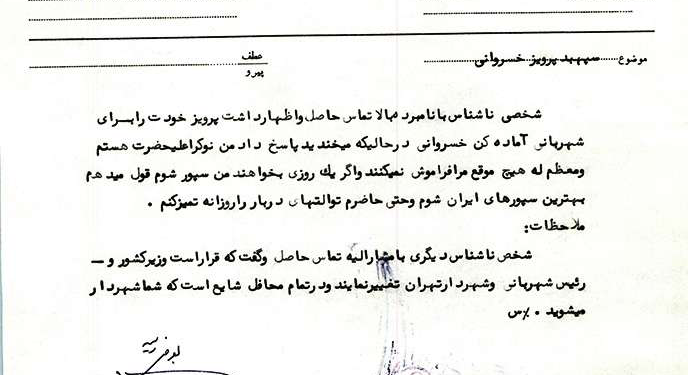 موضوع سپهبد پرویز خسروانی
عطف
پیرو
شخصی ناشناس بانامبرده بالا تماس حاصل واظهارداشت پرویز خودت رابرای
شهربانی آماده کن خسروانی درحالیکه میخندید پاسخ داد من نوکراعلیحضرت هستم
ومعظم له هیچ موقع مرافراموش نمیکنند واگر یك روزی بخواهند من سپور شوم قول میدهم
بهترین سپورهای ایران شوم وحتی حاضرم توالتهای دربار راروزانه تمیزکنم .
ملاحظات:
شخص ناشناس دیگری بامشارالیه تماس حاصل وگفت که قراراست وزیرکشور و ـ
رئیس شهربانی وشهردارتهران تغییرنمایند ودرتمام محافل شایع است که شماشهردار
میشوید .